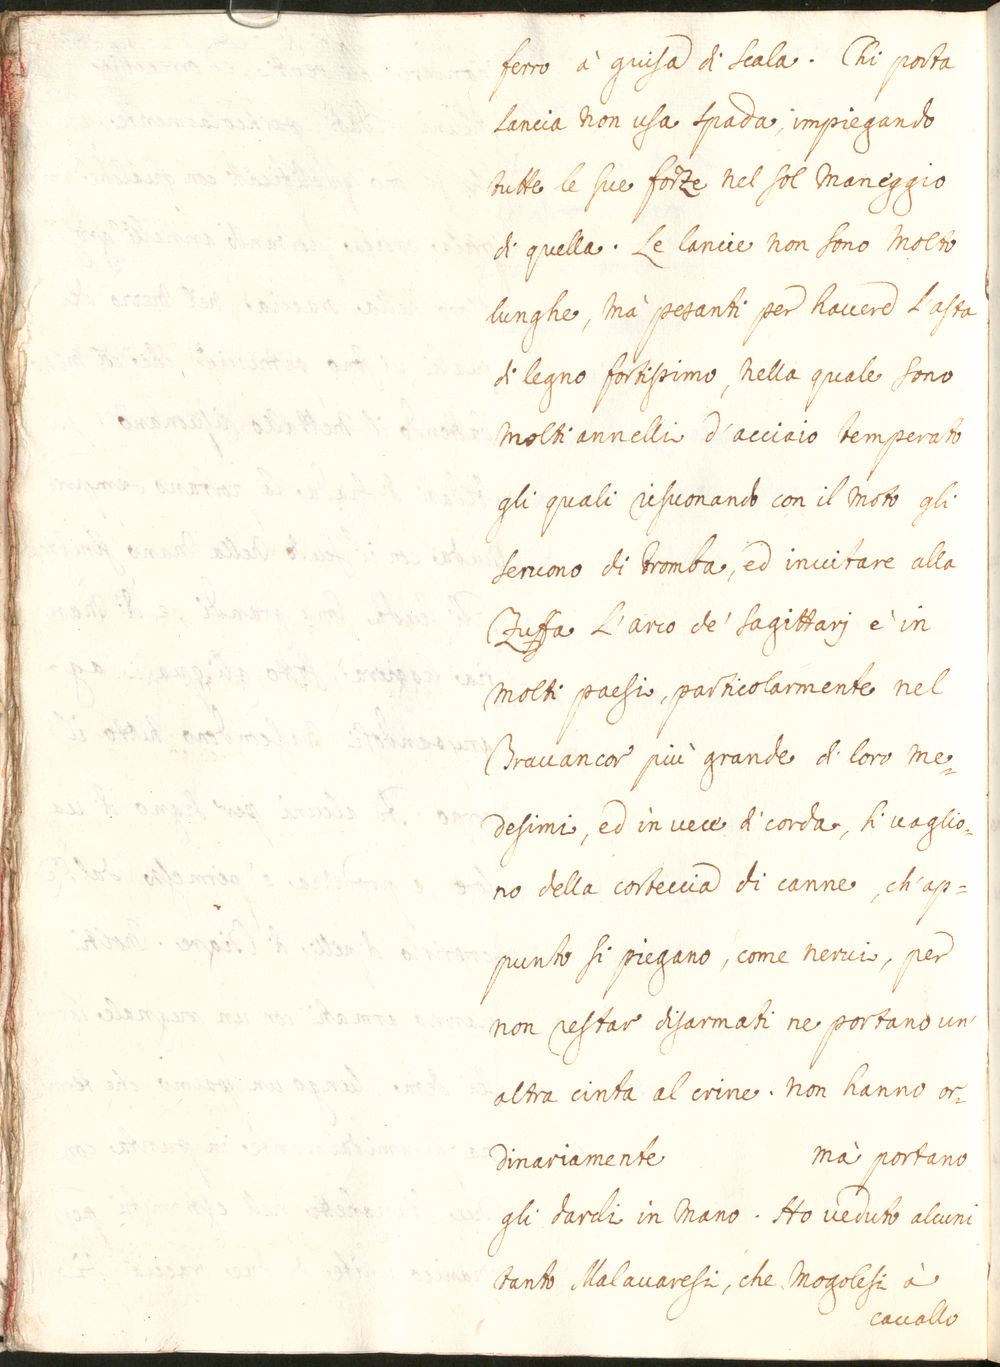 ferro à guisa di scala. Chi porta
lancia non usa spada, impiegando
tutte le sue forze nel sol maneggio
di quella. Le lancie non sono molto
lunghe, mà pesanti per hauere l'asta
di legno fortissimo, nella quale sono
molti annelli d'acciaio temperato
gli quali risuonando con il moto gli
seruono di tromba, ed inuitare alla
Zuffa L'arco de' sagittarj è in
molti paesi, particolarmente nel
Brauancor più grande di loro me=
desimi, ed in uece di corda, si uaglio=
no della corteccia di canne, ch'ap=
punto si piegano, come nerui, per
non restar disarmati ne portano un'
altra cinta al crine. non hanno or=
dinariamente mà portano
gli dardi in mano. Ho ueduto alcuni
tanto Malauaresi, che Mogolesi à
cauallo